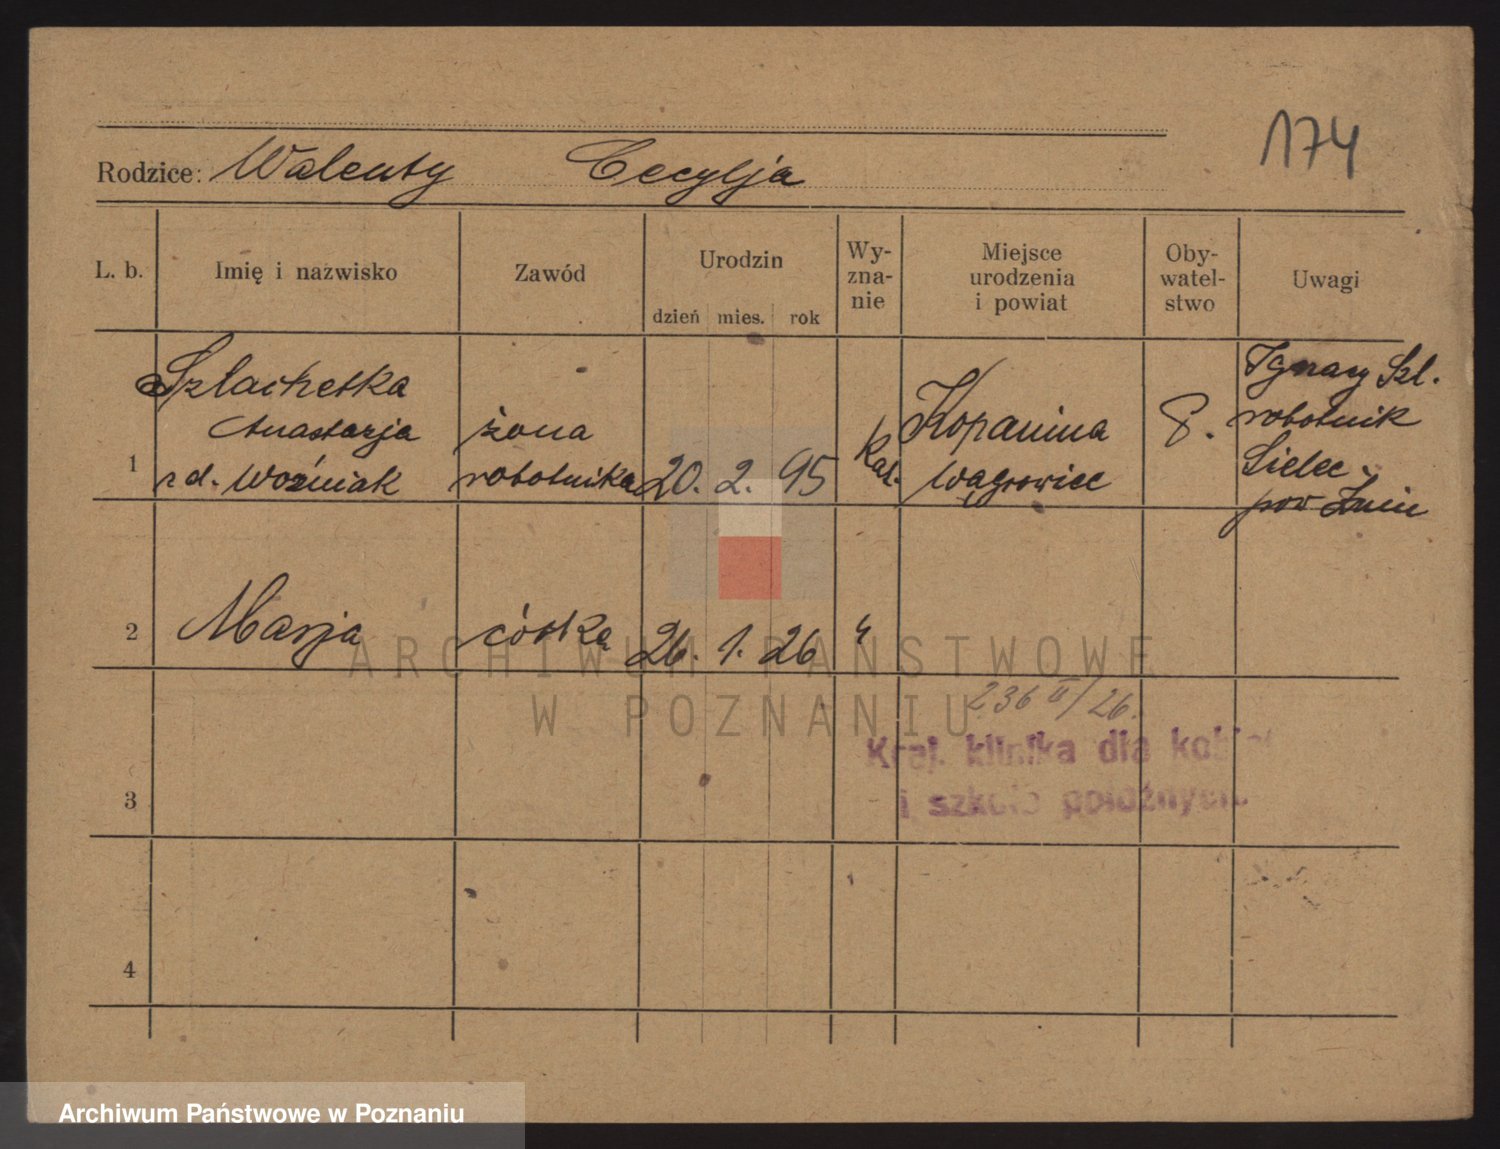 174
Rodzice: Walenty Cecylja
L. b.
Imię i nazwisko
Zawód
Urodzin
dzień mies. rok
Wy-
zna-
nie
Miejsce
urodzenia
i powiat
Oby-
watel-
stwo
Uwagi
1
Szlachetka
Anastazja
rd. Woźniak
żona
robotnika
20. 2. 95
kat.
Kopanina
Wągrowiec
P.
Ignacy Szl.
robotnik
Sielec
pow Żnin
2
Marja
córka
26. 1. 26
"
236 II/26.
Kraj. klinika dla kobiet
i szkoła położnych.
3
4
ARCHIWUM PAŃSTWOWE
W POZNANIU
Archiwum Państwowe w Poznaniu